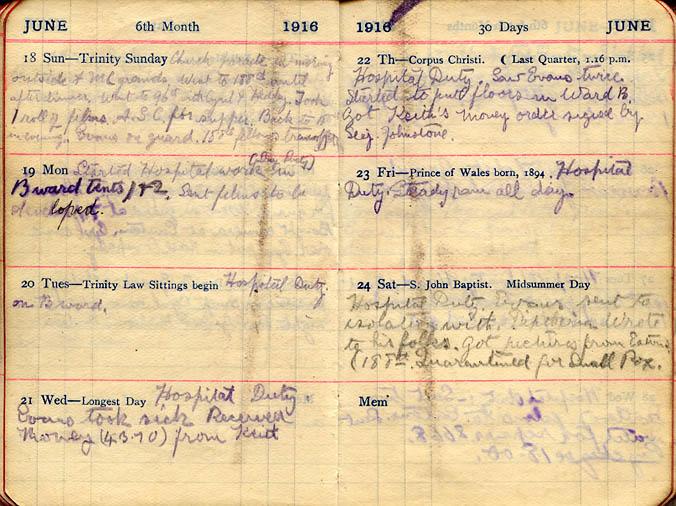 JUNE 6th Month 1916
18 Sun—Trinity Sunday Church parade in morning
outside Y.M.C. grounds. Went to 188th until
after dinner. Went to 96th with Cyril & Took
1 roll of films. A.S.C. for supper. Back to
in evening. Evans on guard. 188th
19 Mon Started Hospital work in
(Day Duty)
B ward tents 1 & 2. Sent films to be
developed.
20 Tues—Trinity Law Sittings begin Hospital Duty
on B ward.
21 Wed—Longest Day Hospital Duty
Evans took sick Received
Money (43.70) from Keith
1916 30 Days JUNE
22 Th—Corpus Christi. ( Last Quarter, 1.16 p.m.
Hospital Duty. Saw Evans twice.
Started to put floors in Ward B.
Got Keith's money order signed by
Serg Johnstone.
23 Fri—Prince of Wales born, 1894. Hospital
Duty. Steady rain all day.
24 Sat—S. John Baptist. Midsummer Day
Hospital Duty Evans sent to
isolation with Diptheria Wrote
to his folks. Got pictures from Eaton's
(188th Quarantined for Small Pox.
Mem